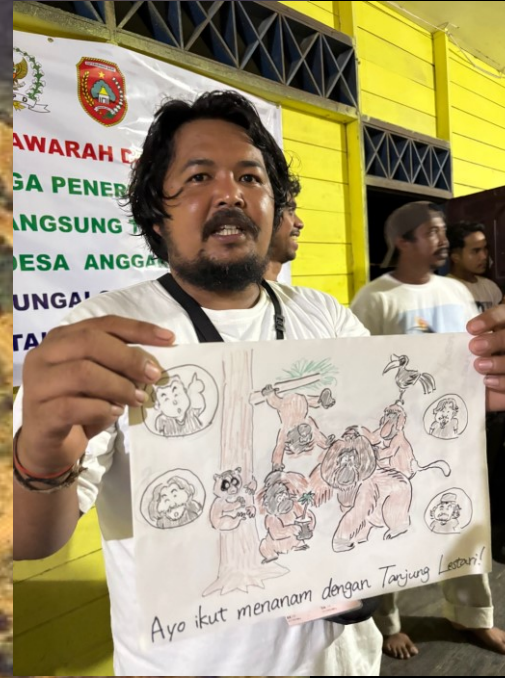 AWARAH D
GA PENER
ANGSUNG T
DESA ANGGA
UNGAI
TA
Ayo ikut menanam dengan Tanjung Lestari!